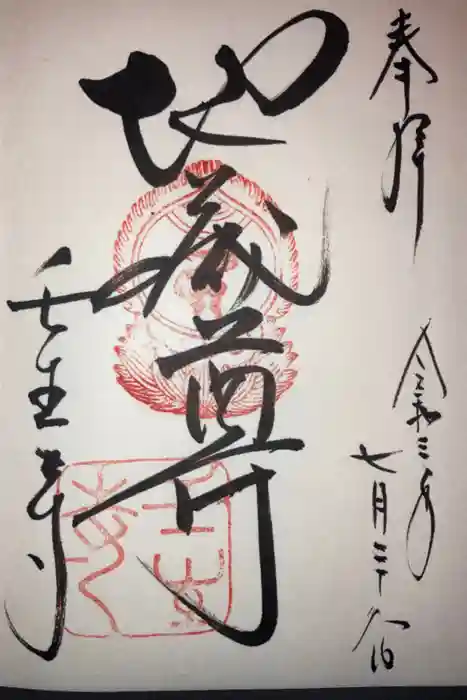 奉拝
令和三年
七月二十八日
地蔵尊
壬生寺